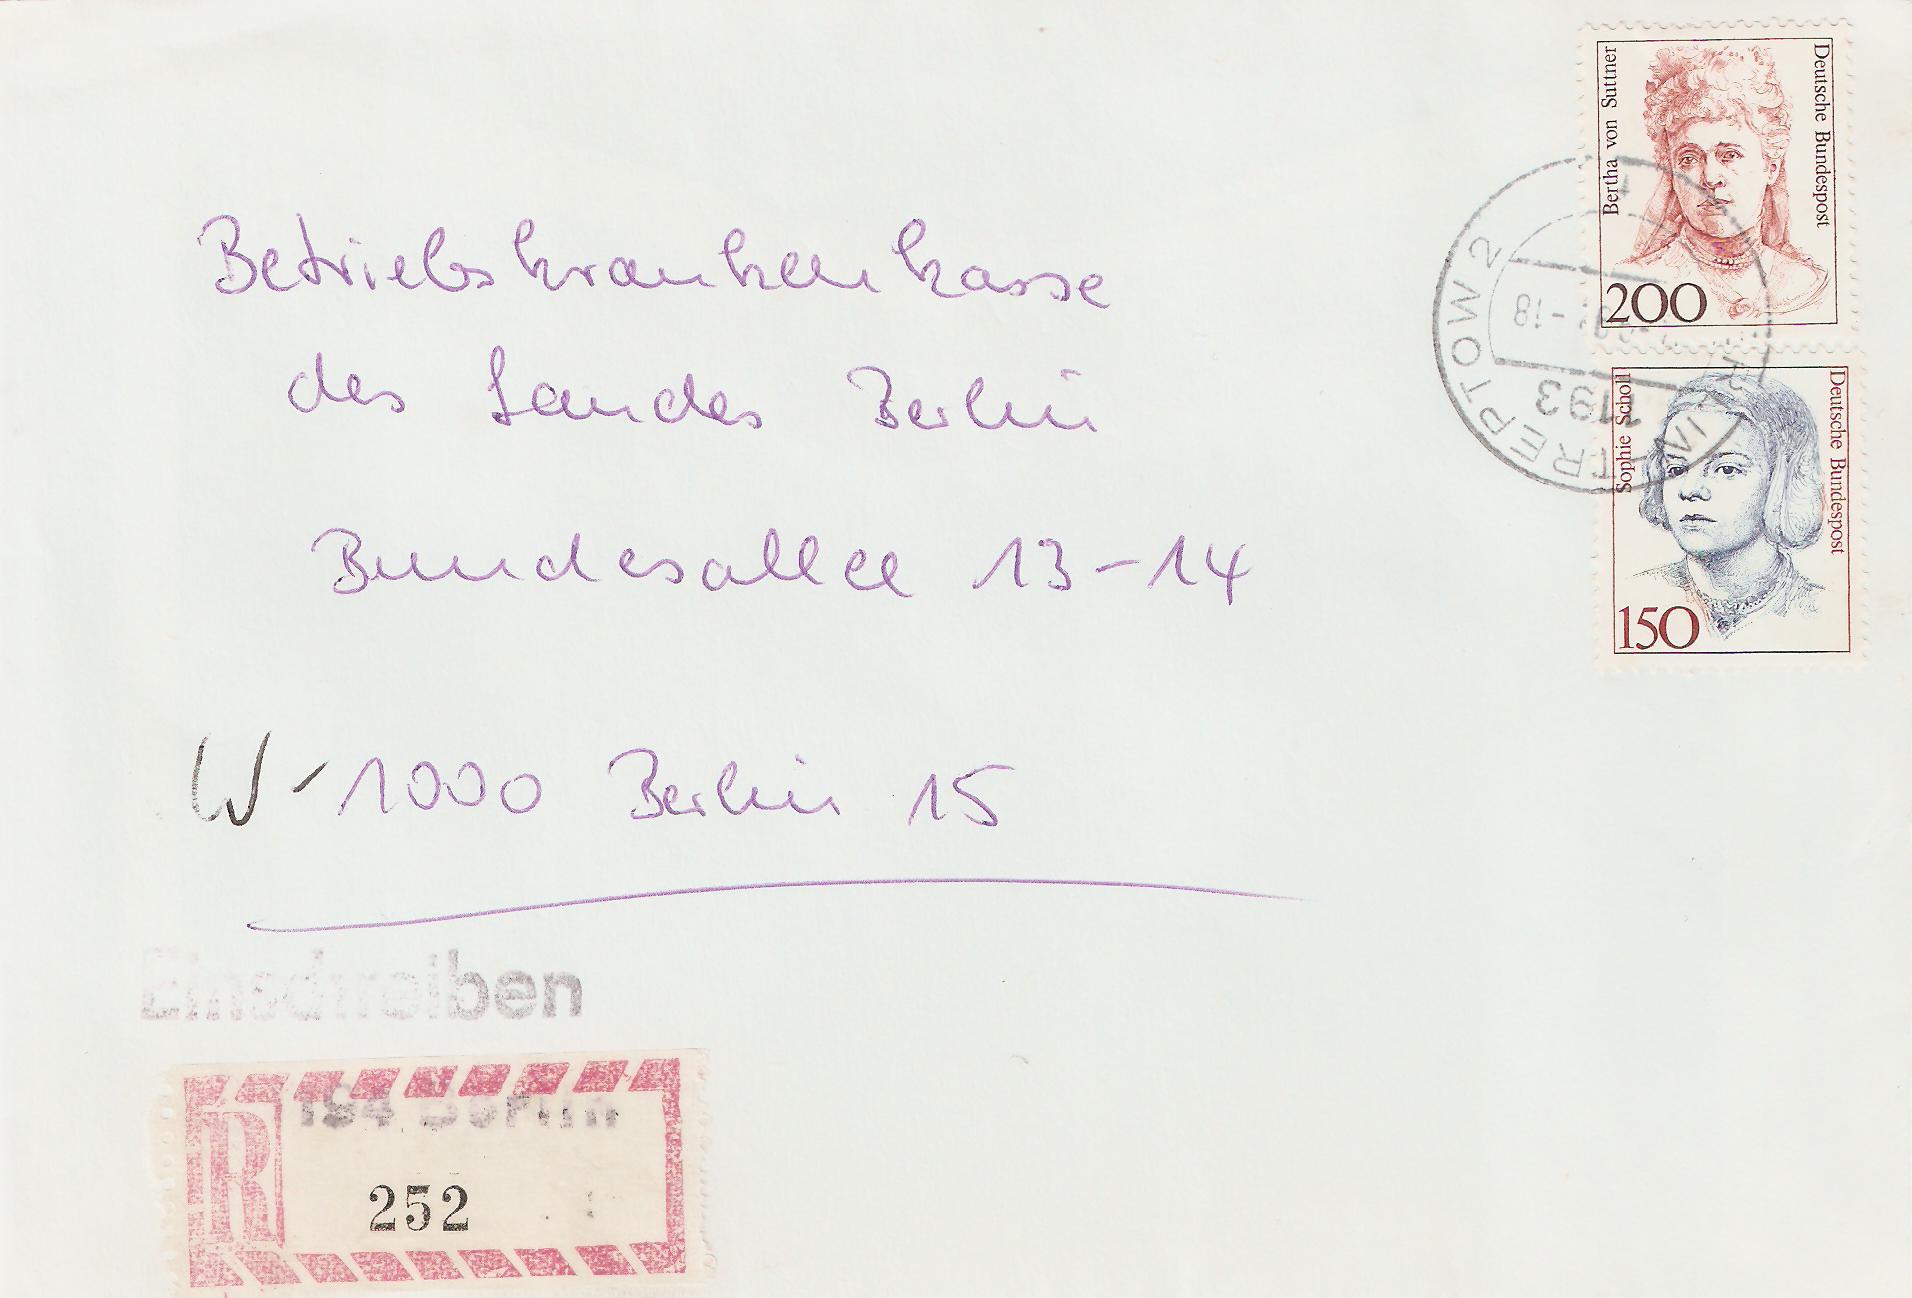 Betriebskrankenkasse
des Landes Berlin
Bundesallee 13-14
W-1000 Berlin 15
Einschreiben
R
194 Berlin
252
Bertha von Suttner
Deutsche Bundespost
200
Sophie Scholl
Deutsche Bundespost
150
TREPTOW 2
1193
-18